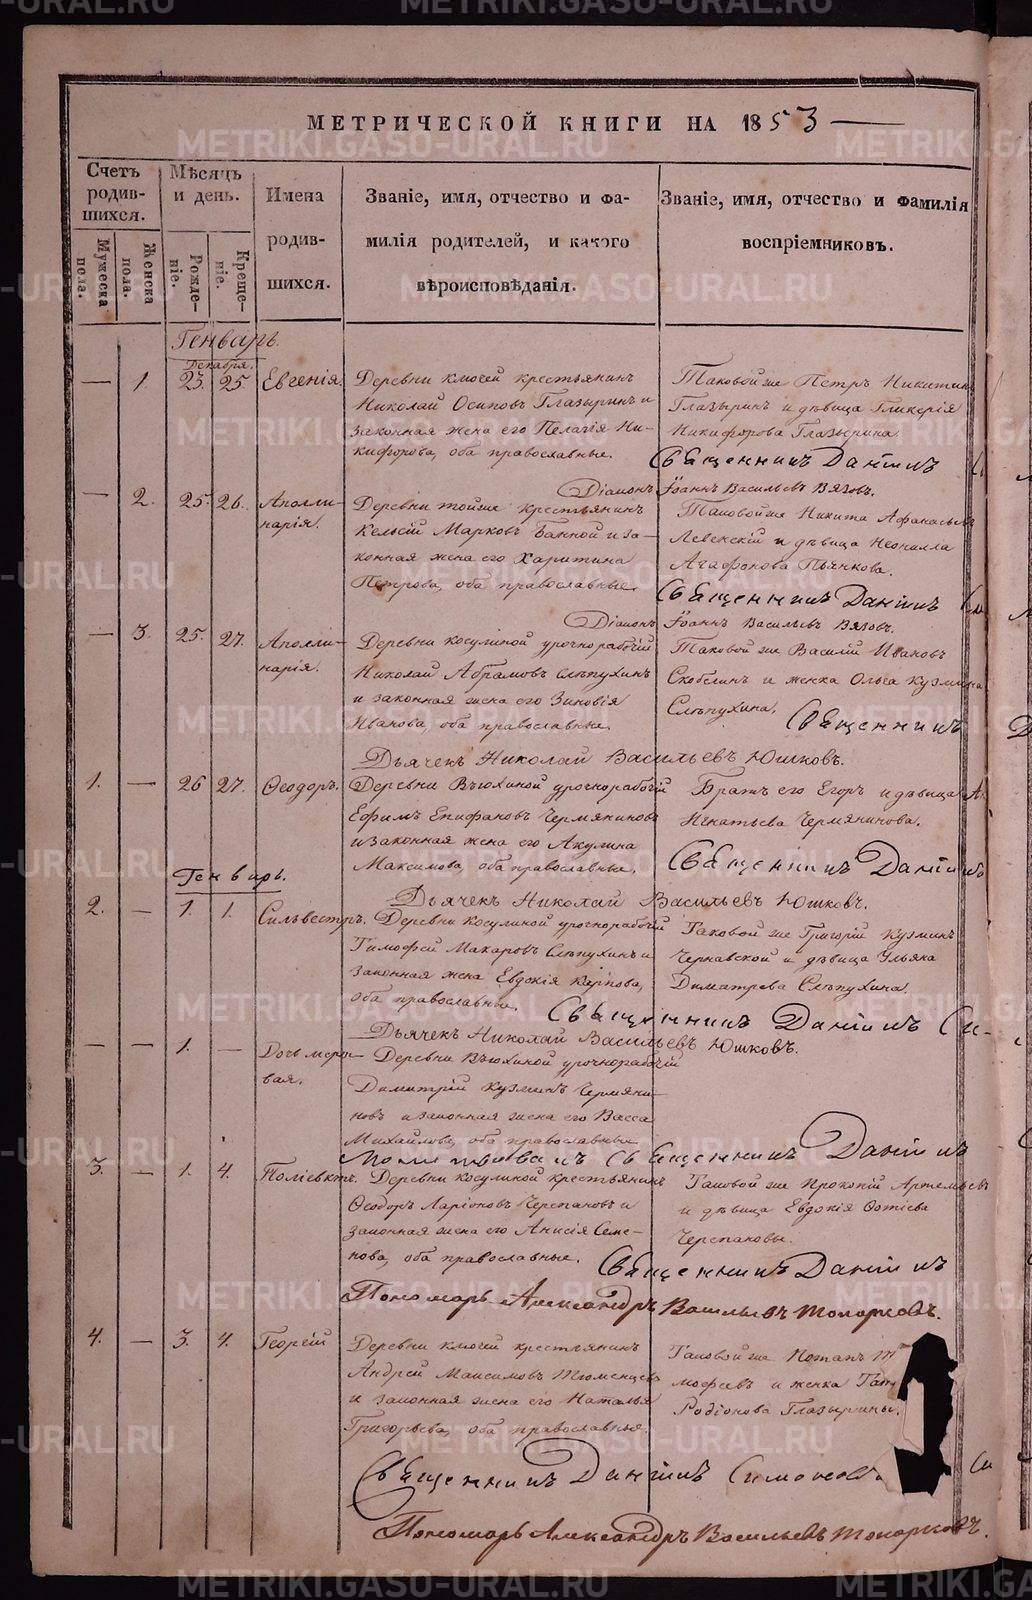 МЕТРИЧЕСКОЙ КНИГИ НА 1853
Счетъ родив-шихся.
Мужеска пола.
Женска пола.
Мѣсяцъ и день.
Рожде-ніе.
Креще-ніе.
Имена родив-шихся.
Званіе, имя, отчество и фа-
милія родителей, и какого
вѣроисповѣданія.
Званіе, имя, отчество и фамилія
воспріемниковъ.
Генварь.
Декабря.
— 1. 23. 25 Евгенія.
Деревни ключей крестьянинъ
Николай Осиповъ Глазыринъ и
законная жена его Пелагія Ни-
кифорова, оба православные.
Таковой же Петръ Никитинъ
Глазыринъ и дѣвица Гликерія
Никифорова Глазырина.
Священникъ Даніилъ
Діаконъ Іоаннъ Васильевъ Вязовъ.
— 2. 25. 26. Аполли-
нарія.
Деревни тойже крестьянинъ
Кельсій Марковъ Банной и за-
конная жена его Харитина
Петрова, оба православные.
Таковойже Никита Афанасьевъ
Левенскій и дѣвица Неонилла
Агафонова Пьянкова.
Священникъ Даніилъ
Діаконъ Іоаннъ Васильевъ Вязовъ.
— 3. 25. 27. Аполли-
нарія.
Деревни косулиной урочнорабочій
Николай Абрамовъ Слѣпухинъ
и законная жена его Зиновія
Иванова, оба православные.
Таковой же Василій Ивановъ
Скобелинъ и женка Ольга Кузмина
Слѣпухина.
Священникъ
Дьячекъ Николай Васильевъ Юшковъ.
1. — 26 27. Ѳеодоръ.
Деревни Вьюхиной урочнорабочій
Ефимъ Епифановъ Чермяниновъ
и законная жена его Акулина
Максимова, оба православные.
Братъ его Егоръ и дѣвица
Игнатьева Чермянинова.
Священникъ Даніилъ
Дьячекъ Николай Васильевъ Юшковъ.
Генварь.
2. — 1. 1. Сильвестръ.
Деревни Косулиной урочнорабочій
Тимофей Макаровъ Слѣпухинъ и
законная жена Евдокія Карпова,
оба православные.
Таковой же Григорій Кузминъ
Чернавской и дѣвица Ульяна
Димитрева Слѣпухина.
Священникъ Даніилъ Си-
Дьячекъ Николай Васильевъ Юшковъ.
— — 1. — Дочь мерт-
вая.
Деревни Вьюхиной урочнорабочій
Димитрій Кузминъ Чермяни-
новъ и законная жена его Васса
Михайлова, оба православные
Молитвовалъ Священникъ Даніилъ
3. — 1. 4. Поліевктъ.
Деревни косулиной крестьянинъ
Ѳеодоръ Ларіоновъ Черепановъ и
законная жена его Анисія Семе-
нова, оба православные.
Таковой же Прокопій Артемьевъ
и дѣвица Евдокія Фотіева
Черепановы.
Священникъ Даніилъ
Пономарь Александръ Васильевъ Топорковъ.
4. — 3. 4. Георгій
Деревни ключей крестьянинъ
Андрей Максимовъ Тюменцевъ
и законная жена его Наталья
Григорьева, оба православные
Таковой же Потапъ Ти
мофеевъ и женка
Родіонова Глазырины.
Священникъ Даніилъ Симоновъ.
Пономарь Александръ Васильевъ Топорковъ.
METRIKI.GASO-URAL.RU